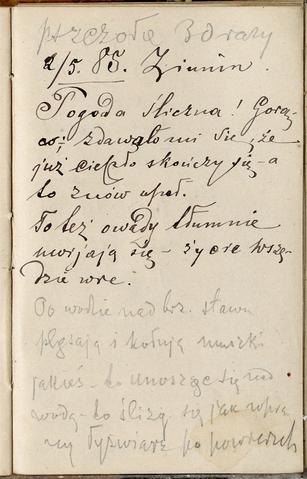 pszczołę 3 razy
2/5. 85. Zimin.
Pogoda śliczna! Gorą-
co; zdawało mi się, że
już ciepło skończy się - a
to znów upał.
To też owady tłumnie
uwijają się - życie wszę-
dzie wre.
Po wodzie nad brz. stawu
pląsają i kołują muszki
jakieś - to unosząc się nad
wodą - to ślizg. się jak wpra
wny łyżwiarz po powierzch